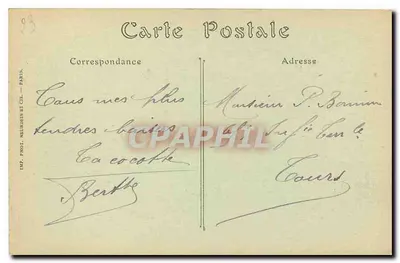 93
Carte Postale
Correspondance
Adresse
IMP. PHOT. NEURDEIN ET CIE. — PARIS.
Tous mes plus
tendres baisers
Ta cocotte
Berthe
Monsieur P.
Tours
CPAPHIL